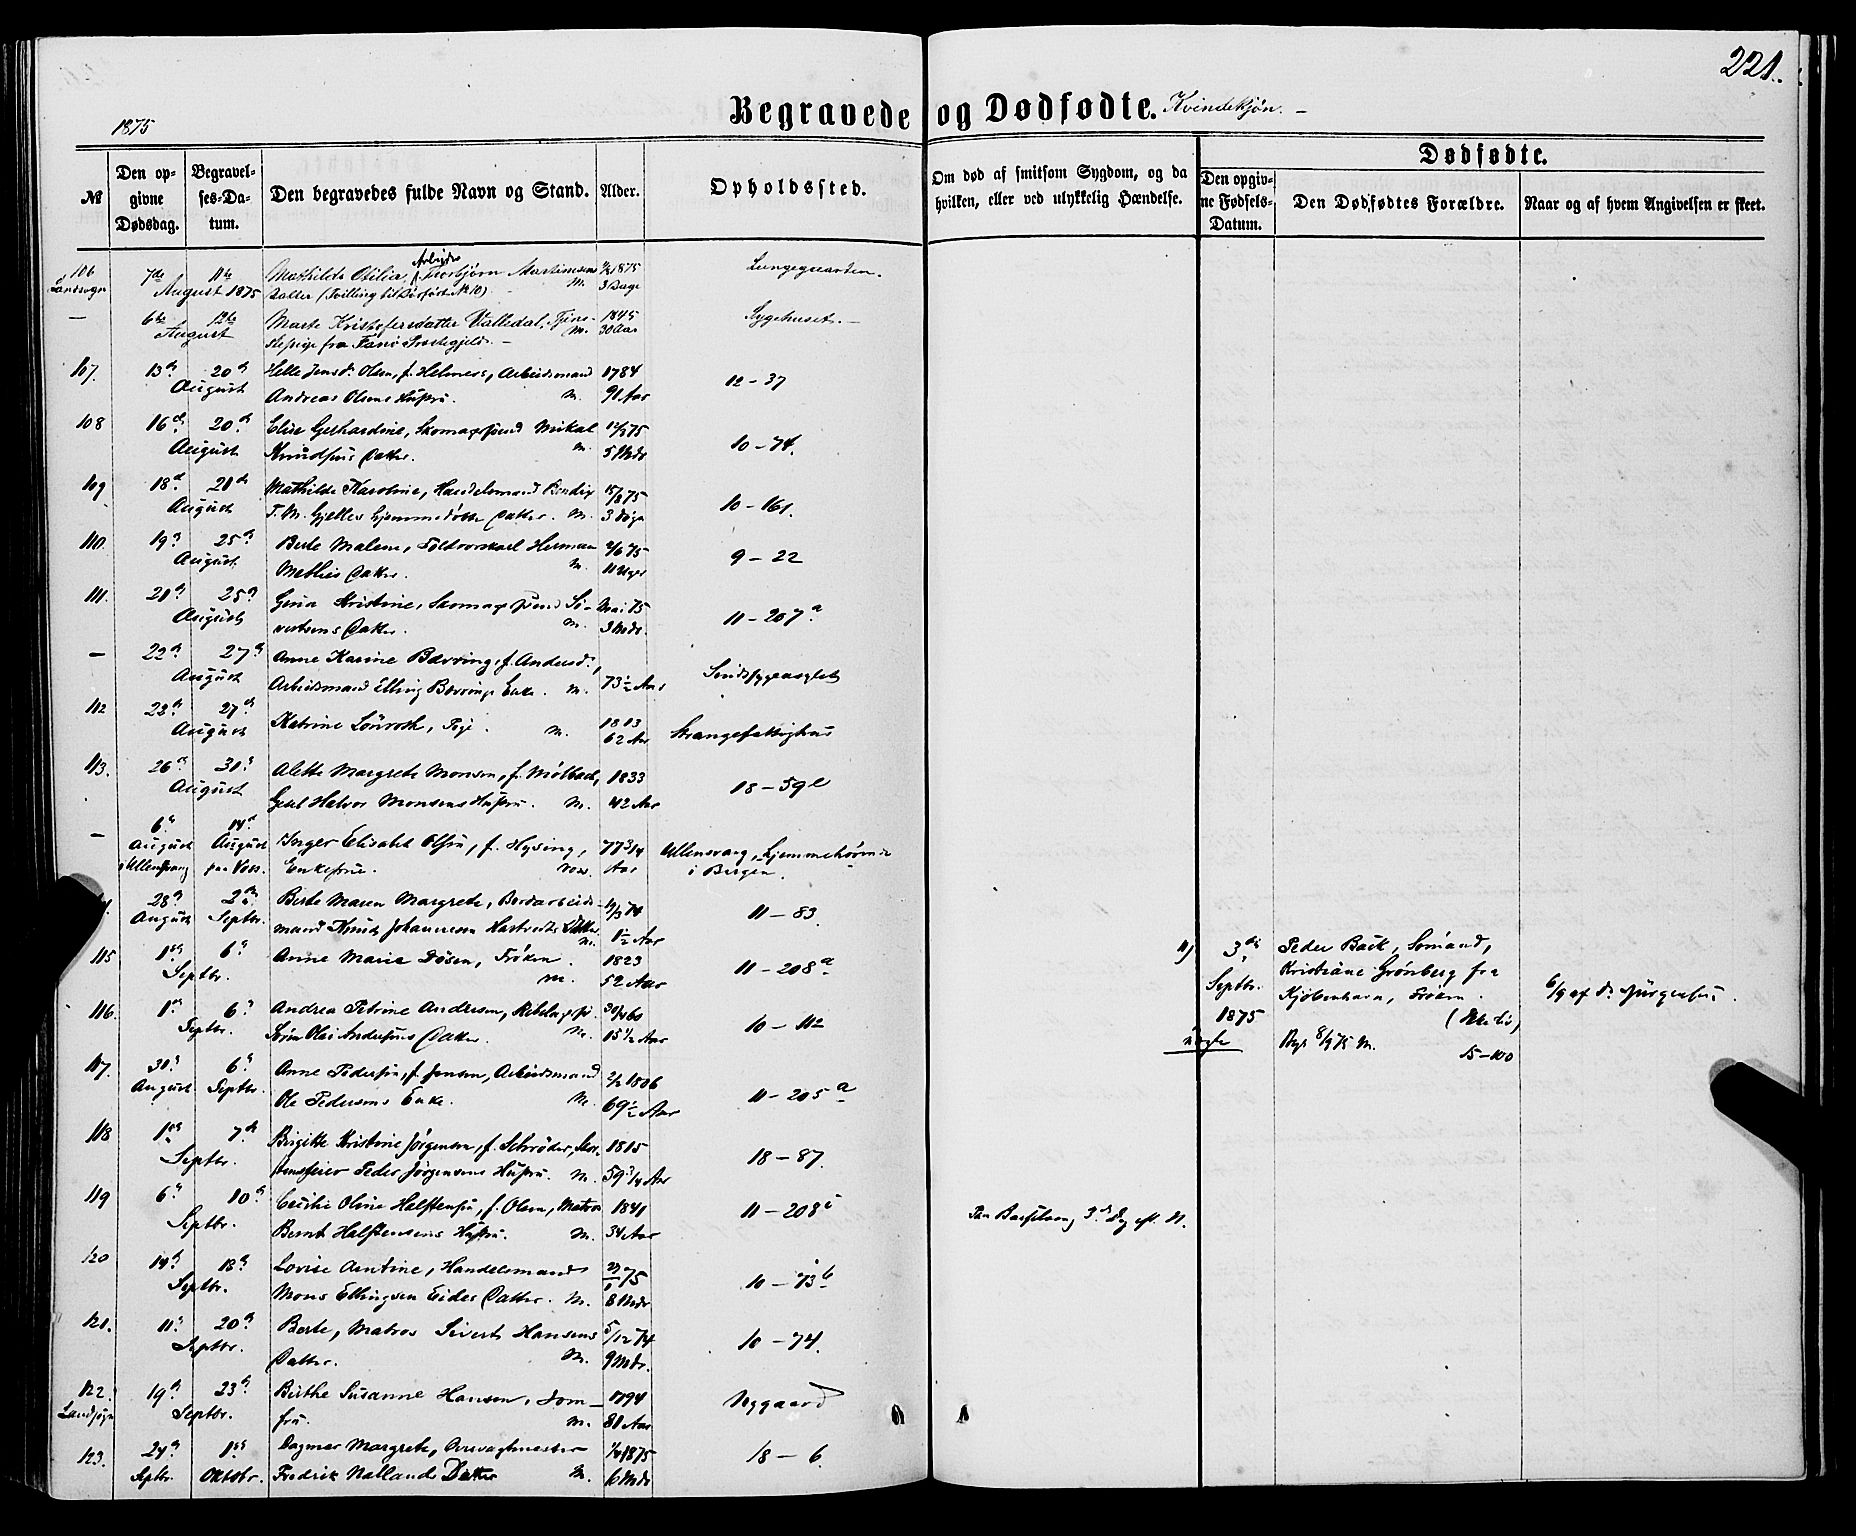 221.
1875
Begravede og Dødfødte. Kvindekjøn. –
№
Den opgivne Dødsdag.
Begravelses-Datum.
Den begravedes fulde Navn og Stand.
Alder.
Opholdssted.
Om død af smitsom Sygdom, og da hvilken, eller ved ulykkelig Hændelse.
Dødfødte.
Den opgivne Fødsels-Datum.
Den Dødfødtes Forældre.
Naar og af hvem Angivelsen er skeet.
106 7de 11te Mathilde Otilie, Arbeider Torbjørn Martinsens 1875 Lungegaarden.
Landsogn August 1875 Datter (Tvilling til Dødfødt № 10). – M. 3 Dage
– 6te 12te Marte Kristofersdatter Valledal, Tjene- 1845 Sygehuset. –
August stepige fra Præstegjeld. – M. 30 Aar
107. 13de 20de Helle Jensd. Olsen, f. Helmers, Arbeidsmand 1784 12 – 37
August Andreas Olsens Hustru. M. 91 Aar
108 16de 20de Elise Gerhardine, Skomagersvend Mikal 75 10 – 74.
August Knudsens Datter. M. 5 Mdr
109 18de 21de Mathilde Karoline, Handelsmand Bendix 15/8 75 10 – 161.
August T. M. Gjelles hjemmedøbte Datter. M. 3 Dage
110. 19de 25de Berte Malene, Toldvorskarl Herman 2/6 75 9 – 22
August Mathies Datter. M. 11 Uger
111. 21de 25de Gina Kristine, Skomagersvend Si- Mai 75 11 – 207 a
August vertsens Datter. M. 3 Mdr.
– 22de 27de Anne Karine Bævring, f. Andersd.,
August Arbeidsmand Elling Bævrings Enke. M. 73 ½ Aar Sindssygeasylet
112 22de 27de Katrine Lönroth, Pige. M. 1813
August 62 Aar Strangefattighus
113. 26de 31de Alette Margrete Monsen, f. Mølbach, 1833 18 – 59 e
August Halvor Monsens Hustru. M. 42 Aar
– 6de 14de Inger Elisabet Olsen, f. Hysing, 77 3/4 Ullensvang, hjemmehørende
August August Enkefrue. Voss. Aar i Bergen.
i Ullensvang paa Voss.
28de 2den Berte Maren Margrete, Bordarbeids- 19/3 74 11 – 83
August Septbr. mand Knud Johannesen Hartvedts Datter M. 1 ½ Aar
115 1ste 6te Anne Marie Døsen, Frøken. 1823 11 – 208 a
Septbr. M. 52 Aar
116. 1ste 6te Andrea Petrine Andersen, 30/4 60 10 – 112
Septbr. Søren Olai Andersens Datter. M. 15 ½ Aar
117. 30te 6te Anne Pedersen, f. Jensen, Arbeidsmand 2/2 1806 11 – 205 a
August Septbr. Ole Pedersens Enke. M. 69 ½ Aar
118 1ste 7de Birgitte Kristine Jørgensen, f. Schrøder, Skor- 1815 18 – 87.
Septbr. stensfeier Peder Jørgensens Hustru. M. 59 3/4 Aar
119 6te 10de Cecilie Oline Halstensen, f. Olsen, Matros 1841 11 – 208 i Paa Barselseng, 3de Dag eft. N.
Septbr. Bernt Halstensens Hustru. M. 34 Aar
120 14de 18de Lovise Antine, Handelsmand 75 10 – 73 b
Septbr. Mons Ellingsen Eides Datter. M. 8 Mdr
121. 11te 20de Berte, Matros Sivert Hansens 5/12 74 10 – 74.
Septbr. Datter. M. 9 Mdr.
122. 19de 23de Birthe Susanne Hansen, Jom- 1794 Nygaard
Landsogn Septbr. fru. M. 81 Aar
123. 24de 1ste Dagmar Margrete, Overvagtmester 1875 18 – 6.
Septbr. Oktobr. Fredrik Nallands Datter M. 6 Mdr
11) 3de Peder Bäck, Sømand,
Septbr. Kristiane Grønberg fra
1875 Kjøbenhavn, Frøken. 6/9 af Dr. Jürgensen.
uægte Bgr. 8/9 75 M. 15 – 100